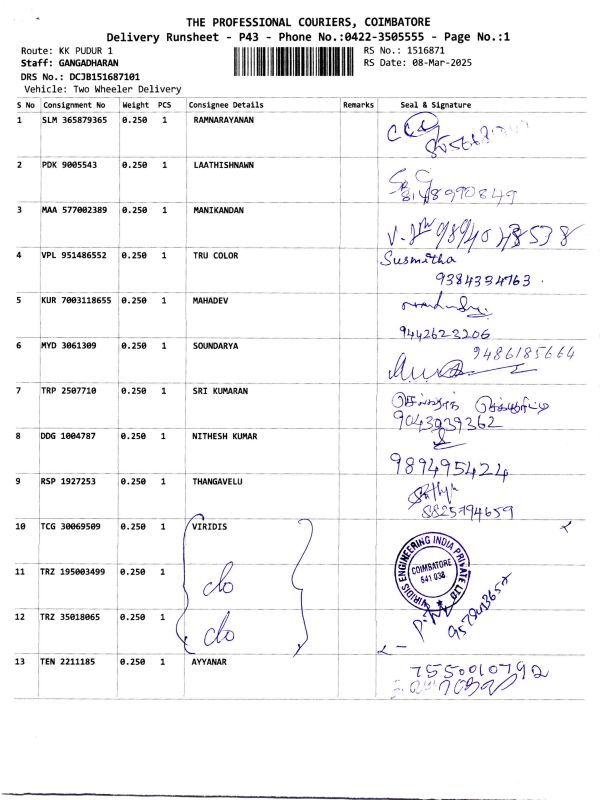 THE PROFESSIONAL COURIERS, COIMBATORE
Delivery Runsheet - P43 - Phone No.:0422-3505555 - Page No.:1
Route: KK PUDUR 1
RS No.: 1516871
Staff: GANGADHARAN
RS Date: 08-Mar-2025
DRS No.: DCJB151687101
Vehicle: Two Wheeler Delivery
S No Consignment No Weight PCS Consignee Details Remarks Seal & Signature
1 SLM 365879365 0.250 1 RAMNARAYANAN
2 PDK 9005543 0.250 1 LAATHISHNAWN
8148990849
3 MAA 577002389 0.250 1 MANIKANDAN
9894048538
4 VPL 951486552 0.250 1 TRU COLOR Susmitha
9384334763
5 KUR 7003118655 0.250 1 MAHADEV
9442623206
6 MYD 3061309 0.250 1 SOUNDARYA 9486185664
7 TRP 2507710 0.250 1 SRI KUMARAN
9043939362
8 DDG 1004787 0.250 1 NITHESH KUMAR
989495424
9 RSP 1927253 0.250 1 THANGAVELU
8825794659
10 TCG 30069509 0.250 1 VIRIDIS
VIRIDIS ENGINEERING INDIA PRIVATE LTD
COIMBATORE
641 038
11 TRZ 195003499 0.250 1 do
12 TRZ 35018065 0.250 1 do
13 TEN 2211185 0.250 1 AYYANAR 7550010792